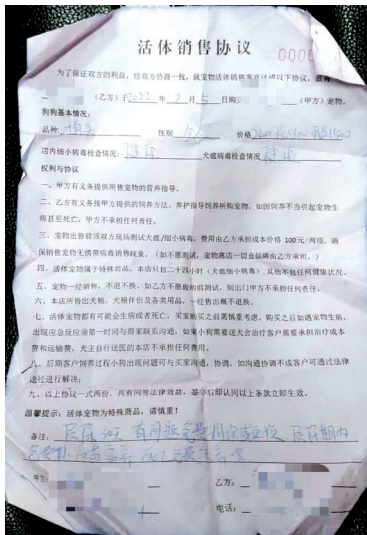 活体销售协议
0000
为了保证双方的利益,经双方协商一致,就宠物活体销售事宜达成以下协议,兹有
(乙方)于2022年2月5日购 (甲方)宠物。
狗狗基本情况:
品种: 性别 价格
店内细小病毒检查情况: 犬瘟病毒检查情况
权利与协议
一、甲方有义务提供所售宠物的营养指导。
二、乙方有义务按甲方提供的饲养方法、养护指导饲养所购宠物,如因饲养不当引起宠物生
病甚至死亡,甲方不承担任何责任。
三、宠物出售前须双方现场测试犬瘟/细小病毒,费用由乙方承担成本价格 100元/两项,确
保销售宠物无携带病毒销售现象。(如不愿测试,宠物离店一切责任将由乙方承担)。
四、活体宠物属于特殊商品,本店只包二十四小时(犬瘟细小病毒),其他不包任何健康状况。
五、宠物一经销售,不退不换,如乙方不愿做购前测试,则出门甲方不承担任何责任。
六、本店所售出犬粮、犬粮伴侣及各类用品,一经售出概不退换。
七、活体宠物都有可能会生病或者死亡,买家购买之前需慎重考虑,购买之后如遇宠物生病,
出现应急反应须第一时间与商家联系沟通,如果小狗需要送犬会治疗客户需要承担治疗成本
费和运输费,犬主自行送医的本店不承担任何费用。
八、后期客户饲养过程小狗出现问题可与买家沟通,协调,如沟通协调不成客户可通过法律
途径进行解决;
九、以上协议一式两份,具有同等法律效益,签字后即认同以上条款立即生效。
温馨提示:活体宠物为特殊商品,请慎重!
备注:
甲方: 乙方:
电话: